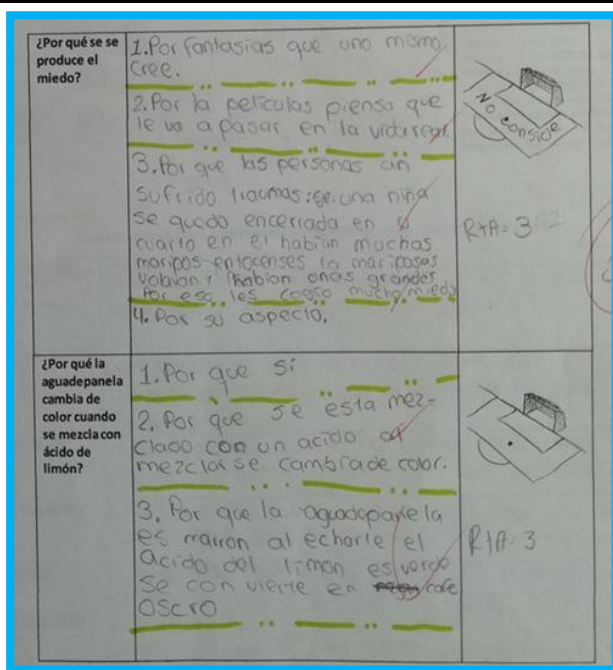 ¿Por qué se se
produce el
miedo?
1. Por fantasias que uno mismo
cree.
2. Por la peliculas piensa que
le va a pasar en la vida real.
3. Por que las personas an
sufrido traumas: ge. una niña
se quedo encerrada en
cuarto en el habian muchas
maripos entocenses la mariposas
volavan y habian onas grandes
Por eso les cogio mucho miedo
4. Por su aspecto.
No conside
R+A= 3
¿Por qué la
aguadepanela
cambia de
color cuando
se mezcla con
ácido de
limón?
1. Por que si
2. Por que se esta mez-
clado con un acido al
mezclarse cambia de color.
3. Por que la aguadepanela
es marron al echarle el
acido del limon es verde
se con vierte en cafe
oscro
R+A- 3